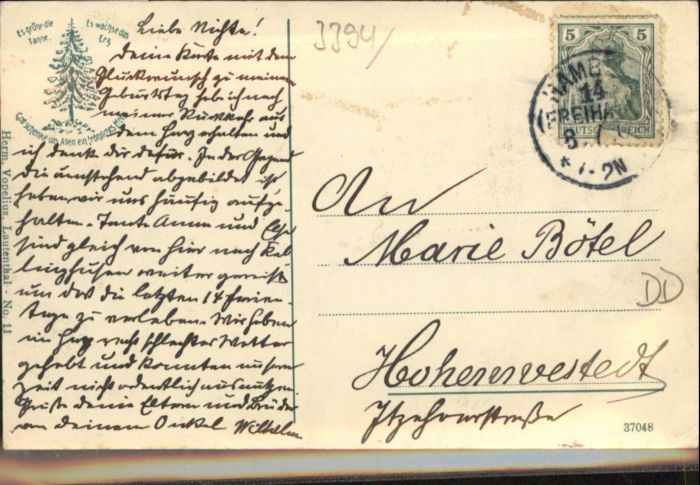 Es grüne die Tanne,
Es wachse das Erz
Gott schenke uns Allen ein fröhliches Herz
Liebe Nichte!
Deine Karte mit dem
Glückwunsch zu meinem
Geburtstag hab ich nach
meiner Rückkehr aus
dem Harz erhalten und
ich danke dir dafür. In der Gegend
die umstehend abgebildet ist
haben wir uns häufig aufge-
halten. Tante Anna und Else
sind gleich von hier nach Kel-
linghusen weiter gereist
um dort die letzten 14 Ferien-
tage zu verleben. Wir haben
im Harz recht schlechtes Wetter
gehabt und konnten unsere
Zeit nicht ordentlich ausnutzen.
Grüße deine Eltern und Brüder
von deinem Onkel Wilhelm
Herm. Vopelius, Lautenthal - No. 11
3394/
5 5
DEUTSCHES REICH
HAMB
14
(FREIHA
8
* 7-8N
An
Marie Bötel
DD
Hohenwestedt
Itzehoerstraße
37048